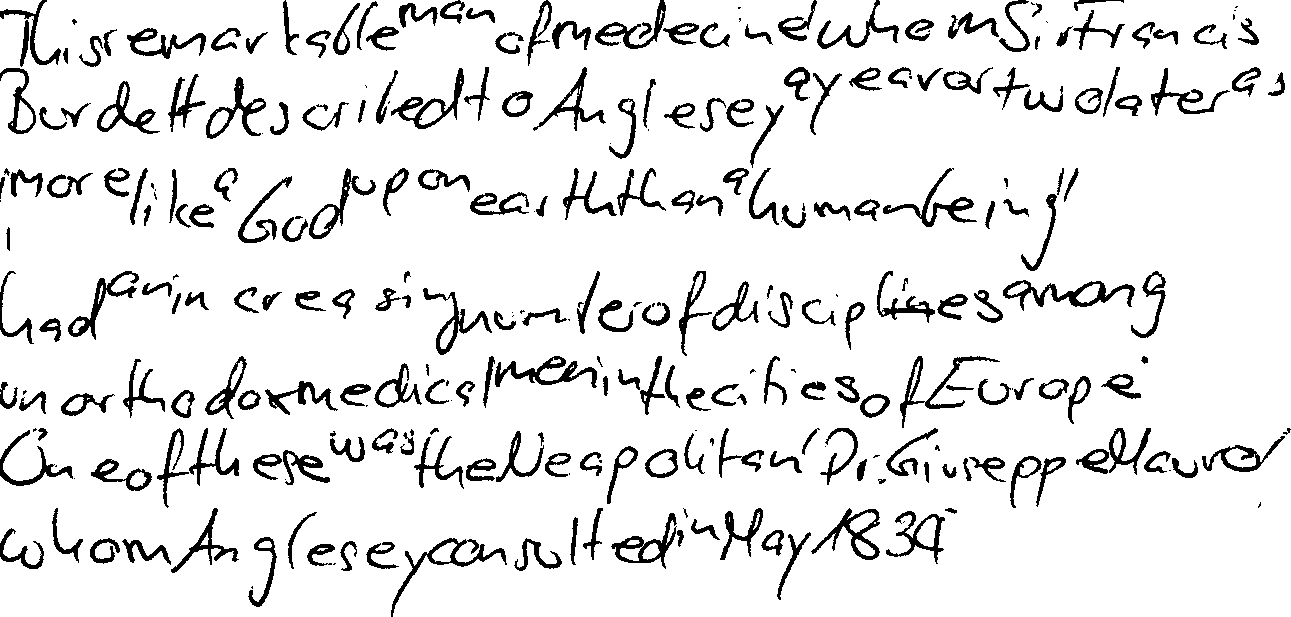 This remarkable man of medecine whom Sir Francis
Burdett described to Anglesey a year or two later as
"more like a God upon earth than a human being"
had an increasing number of disciplines among
unorthodox medical men in the cities of Europe.
One of these was the Neapolitan, Dr. Giuseppe Mauro,
whom Anglesey consulted in May 1834.